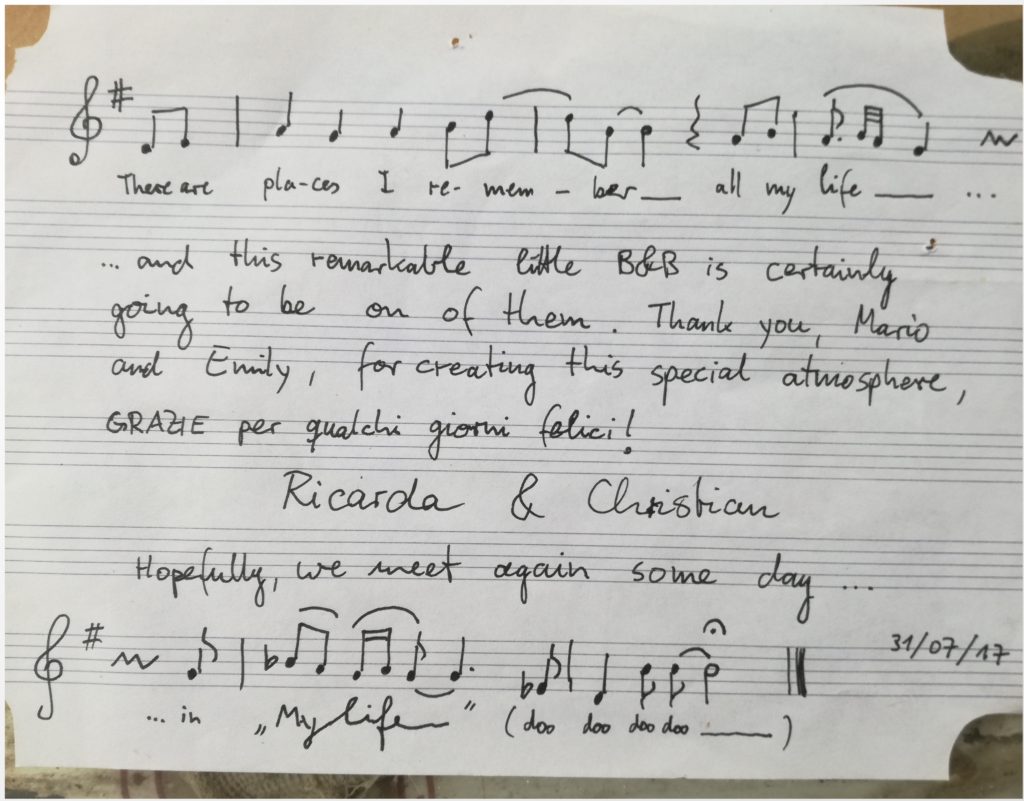 There are pla-ces I re- mem - ber__ all my life ___ ...
... and this remarkable little B&B is certainly
going to be on of them. Thank you, Mario
and Emily, for creating this special atmosphere,
GRAZIE per qualchi giorni felici!
Ricarda & Christian
Hopefully, we meet again some day ...
31/07/17
... in „My life" (doo doo doo doo ____)